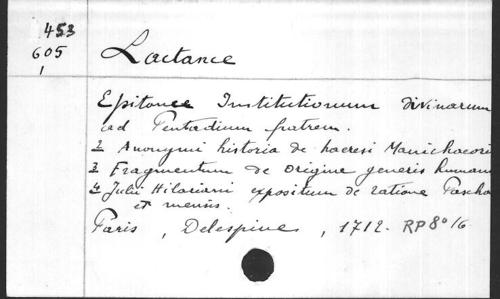 453
605
1
Lactance
Epitome Institutionum divinarum
ad Pentadium fratrem.
2 Anonymi historia de haeresi Manichaeoru
3 Fragmentum de origine generis humani
4 Julii Hilariani expositum de ratione Pascha
et mensis.
Paris, Delespine, 1712. RP 8° 16